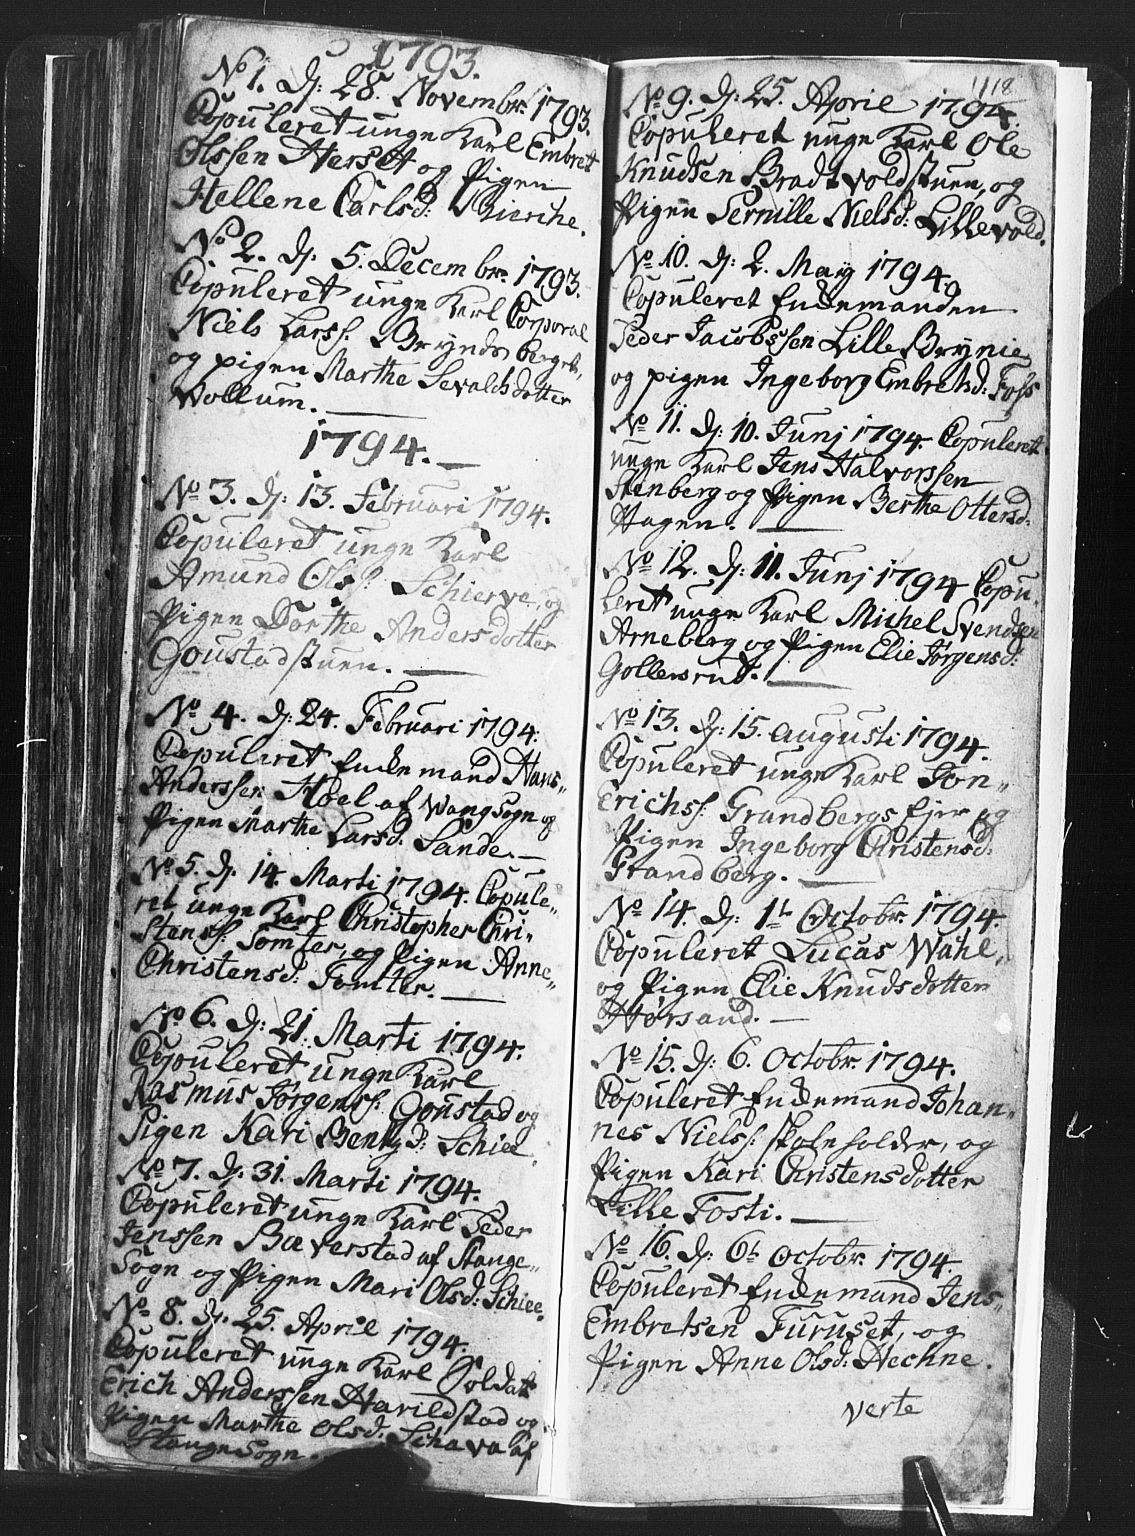 1793.
No 1. d: 28. Novembr. 1793.
Copuleret unge Karl Embret
Olssen Herset og Pigen
Hellene Carlsd: Bierche.
No 2. d: 5. Decembr. 1793.
Copuleret unge Karl Corporal
Niels Larss: Bryndsberget,
og pigen Marthe Sevaldsdotter
Wollum.
1794.
No 3. d: 13. Februari 1794.
Copuleret unge Karl
Amund Olss: Schierve, og
Pigen Dorthe Andersdotter
Goustadstuen.
No 4. d: 24. Februari 1794.
Copuleret Enkemand Hans
Anderssen Hoel af Wangsogn og
Pigen Marthe Larsd: Sande.
No 5. d: 14. Marti 1794. Copule„
ret unge Karl Christopher Chri„
stenss: Tomter, og Pigen Anne„
Christensd: Tomter.
No 6. d: 21. Marti 1794.
Copuleret unge Karl
Rasmus Jørgenss: Goustad og
Pigen Kari Bentsd: Schiee.
No 7. d: 31. Marti 1794.
Copuleret unge Karl Peder
Jenssen Bæverstad af Stange„
Sogn og Pigen Mari Olsd: Schiee.
No 8. d: 25. April 1794.
Copuleret unge Karl Soldat
Erich Anderssen Harildstad og
Pigen Marthe Olsd: Schava af
Stange Sogn.
118
No 9. d: 25. April 1794.
Copuleret unge Karl Ole
Knudsen Bradtvoldstuen, og
Pigen Pernille Nielsd: Lillevold.
No 10. d: 2. May 1794.
Copuleret Enkemanden
Peder Jacobssen Lille Brynie
og pigen Ingeborg Embretsd: Foss
No 11. d: 10. Junj 1794. Copuleret
unge Karl Jens Halvorssen
Stenberg og Pigen Berthe Ottersd:
Hagen.
No 12. d: 11. Junj 1794 Copu„
leret unge Karl Michel Svendsen
Arneberg og Pigen Elie Jørgensd:
Gollersrud.
No 13. d: 15. augusti 1794.
Copuleret unge Karl Jon„
Erichss: Grandbergs Ejer og
Pigen Ingeborg Christensd:
Grandberg.
No 14. d: 1t Octobr. 1794.
Copuleret Lucas Wahl,
og Pigen Elie Knudsdotter
Horsand.
No 15. d: 6. Octobr. 1794.
Copuleret Enkemand Johan„
nes Nielss: Skoleholder, og
Pigen Kari Christensdotter
Lille Fosti.
No 16. d: 6t Octobr. 1794
Copuleret Enkemand Jens„
Embretsen Furuset, og
Pigen Anne Olsd: Hechne.
verte